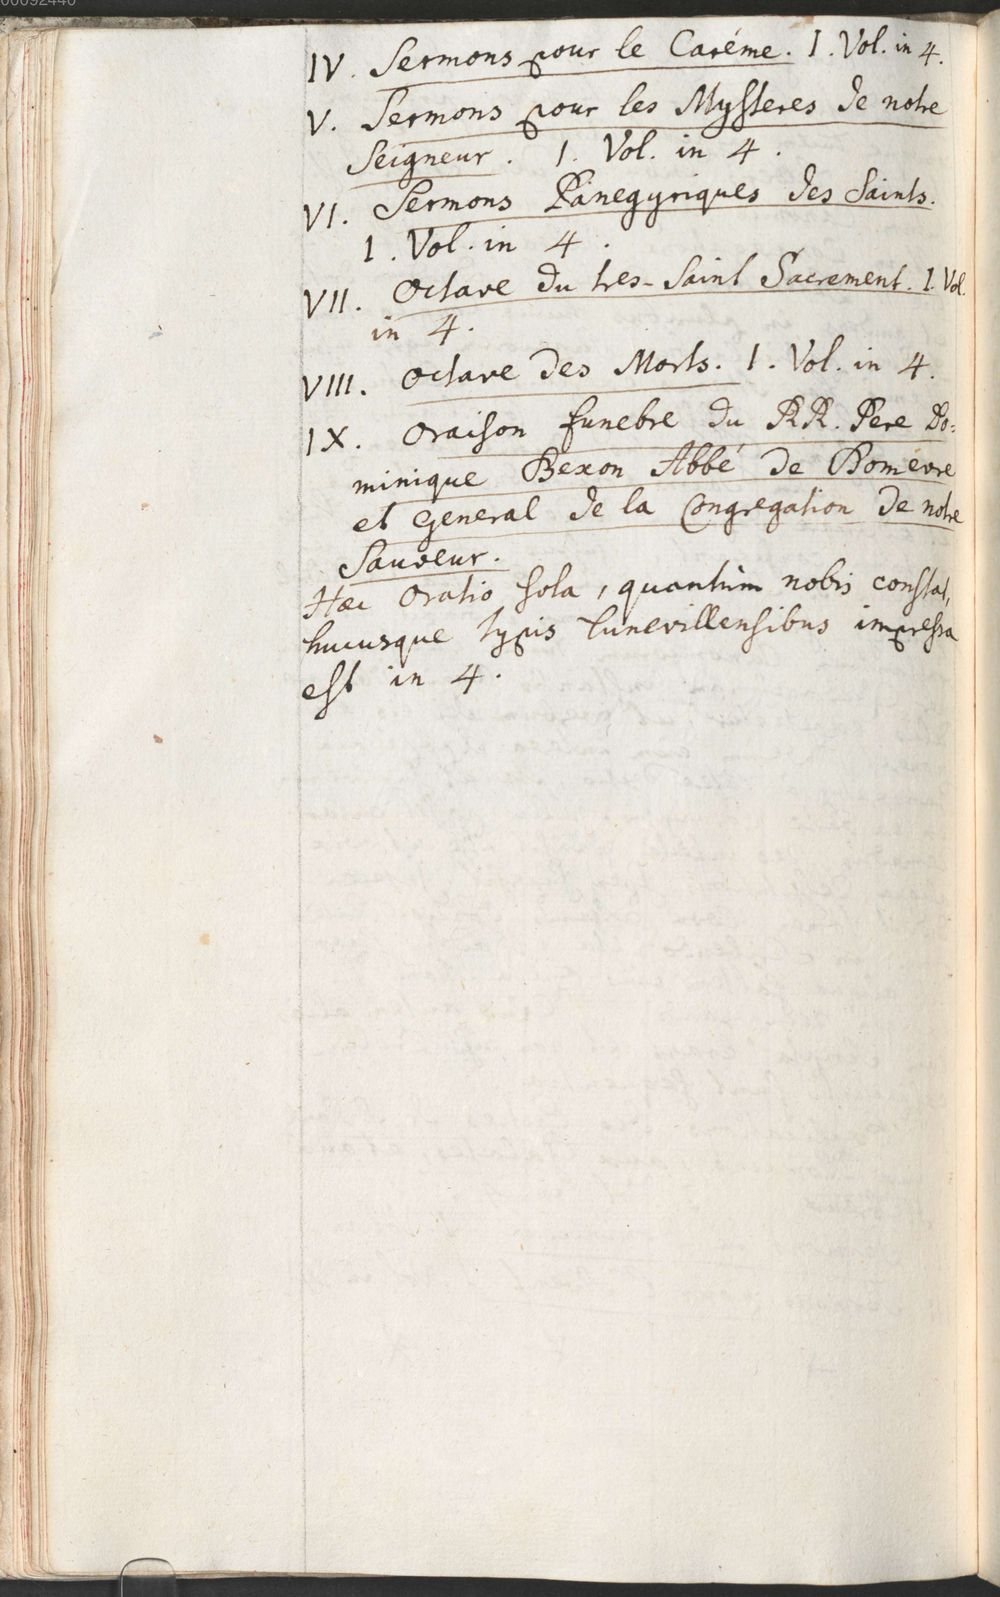 IV. Sermons pour le Caréme. I. Vol. in 4.
V. Sermons pour les Mysteres de notre
Seigneur. I. Vol. in 4.
VI. Sermons Panegyriques des Saints.
I. Vol. in 4.
VII. Octave du tres-Saint Sacrement. I. Vol.
in 4.
VIII. Octave des Morts. I. Vol. in 4.
IX. Oraison funebre du RR. Pere Do=
minique Bexon Abbé de Domevre
et General de la Congregation de notre
Sauveur.
Hæc Oratio sola, quantùm nobis constat,
hucusque typis lunevillensibus impressa
est in 4.